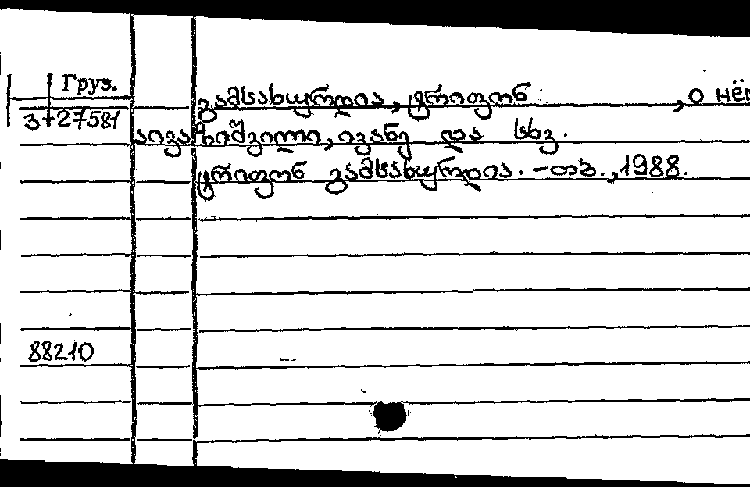 Груз.
გამსახურდია, ტრიფონ, о нём
3+27581
აივაზიშვილი, ივანე და სხვ.
ტრიფონ გამსახურდია. - თბ., 1988.
88210